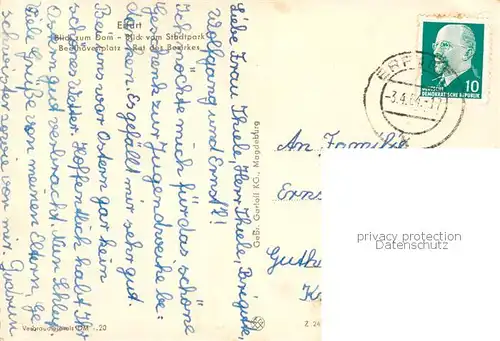 Erfurt
Blick zum Dom - Blick vom Stadtpark
Beethovenplatz - Rat des Bezirkes
Liebe Frau Thiele, Herr Thiele, Brigitte,
Wolfgang und Ernst!
Ich möchte mich für das schöne
Geschenk zur Jugendweihe be=
danken. Es gefällt mir sehr gut.
Bei uns war Ostern gar kein
schönes Wetter. Hoffentlich habt Ihr
Ostern gut verbracht. Nun Schluß.
Viele Grüße von meinen Eltern, Ge
schwister sowie von mir. Gudrun
Gebr. Garloff KG., Magdeburg
Verbraucherpreis DM -,20
Z 24
ERFURT
-3.4.64-17
10
DEUTSCHE
DEMOKRATISCHE REPUBLIK
An Familie
Erns
Guth
K
privacy protection
Datenschutz